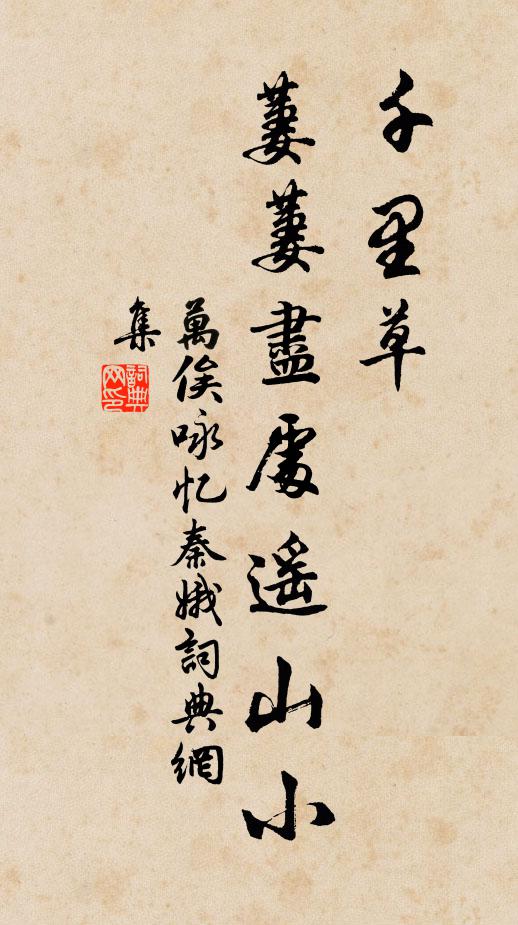 千里草
萋萋盡處遥山小
萬俟咏忆秦娥詞典網
集
詞典
网印